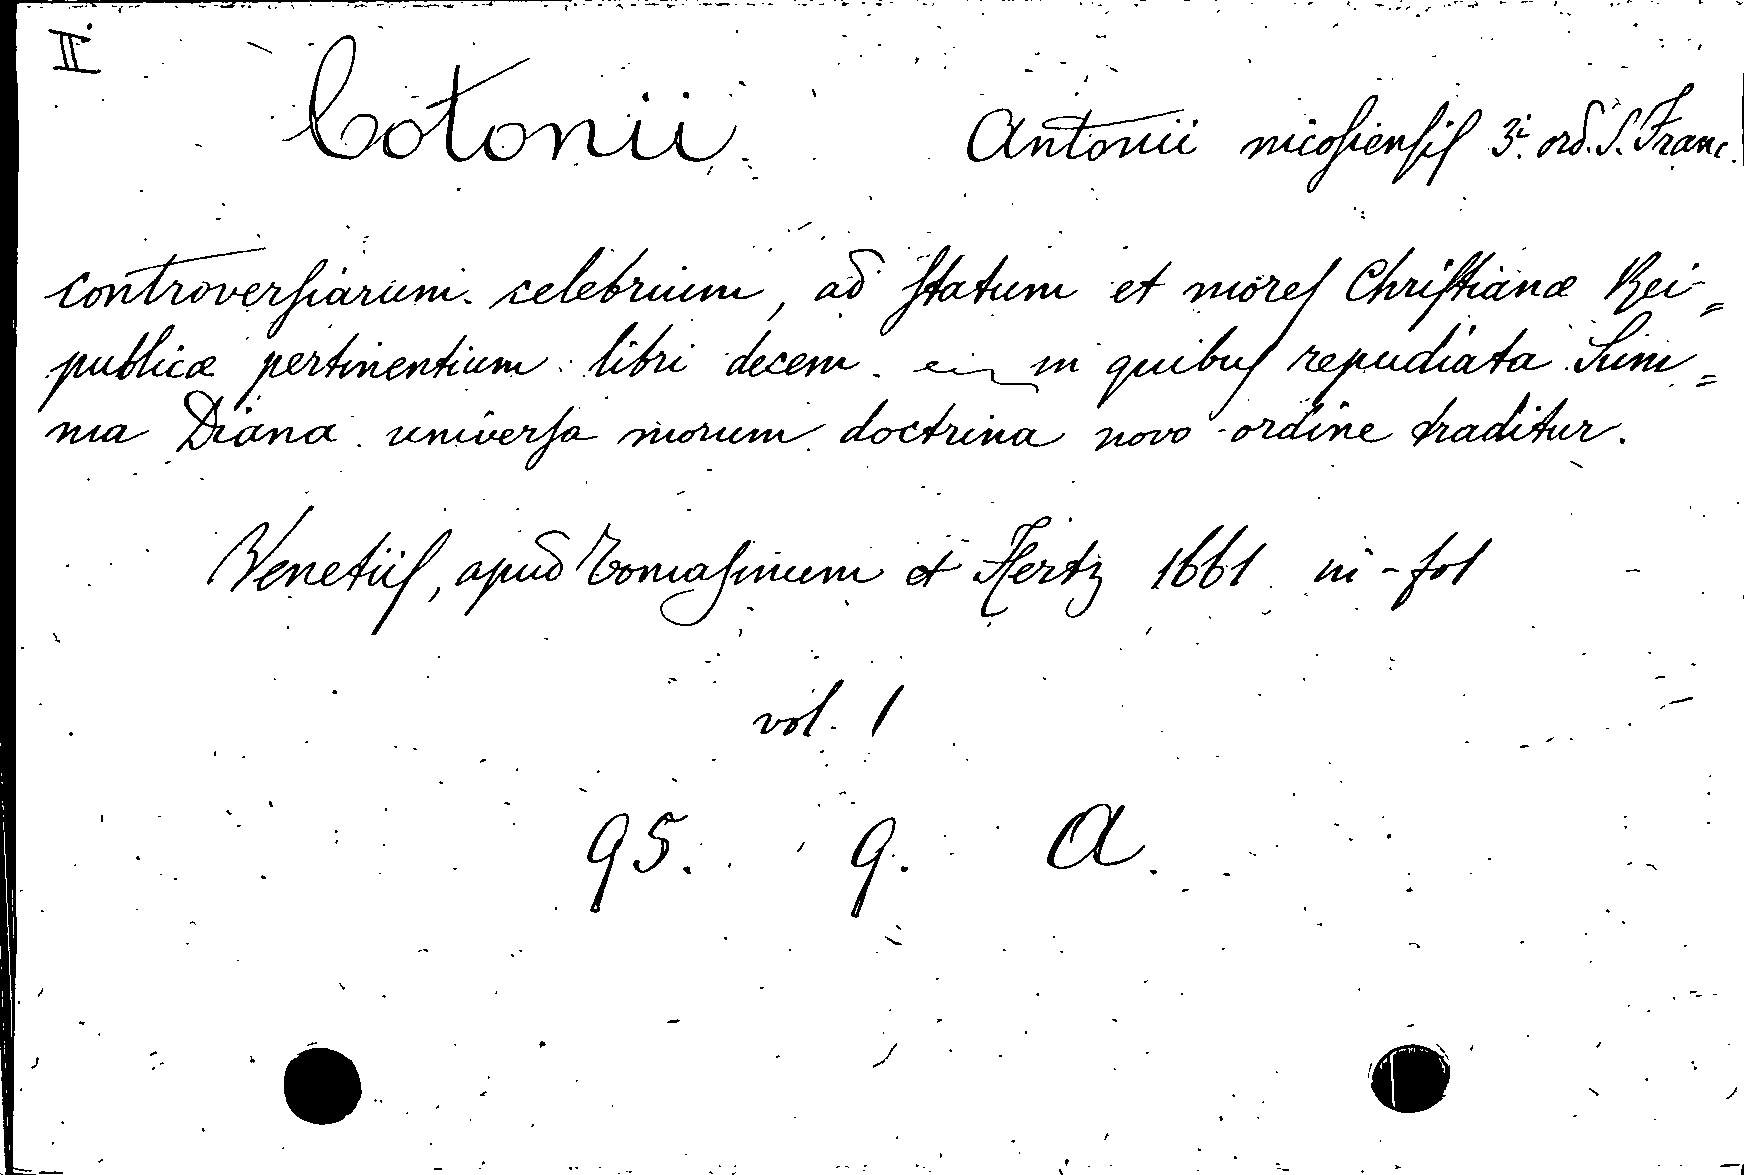 II.
Cotonii Antonii nicosiensis 3.i ord. S. Franc.
controversiarum celebrium, ad statum et mores Christianæ Rei=
publicæ pertinentium libri decem. in quibus repudiata Sum=
ma Diana universa morum doctrina novo ordine traditur.
Venetiis, apud Tomasinum et Hertz 1661 in-fol
vol. 1
95. 9. A.